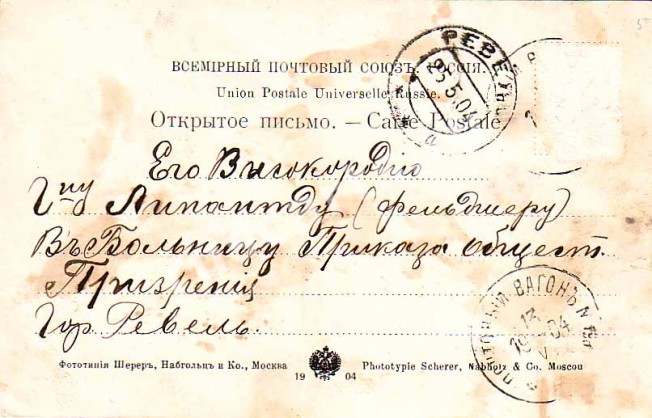 ВСЕМІРНЫЙ ПОЧТОВЫЙ СОЮЗЪ. РОССІЯ.
Union Postale Universelle. Russie.
Открытое письмо. — Carte Postale
РЕВЕЛЬ
5.04
а
Его Высокородію
Гну (фельдшеру)
Въ Больницу Приказа общест.
Призрения
Гор. Ревель.
ПОЧТОВЫЙ ВАГОНЪ N
13
19 04
V
Фототипія Шереръ, Набгольцъ и Ко., Москва
19 04
Phototypie Scherer, Nabholz & Co. Moscou